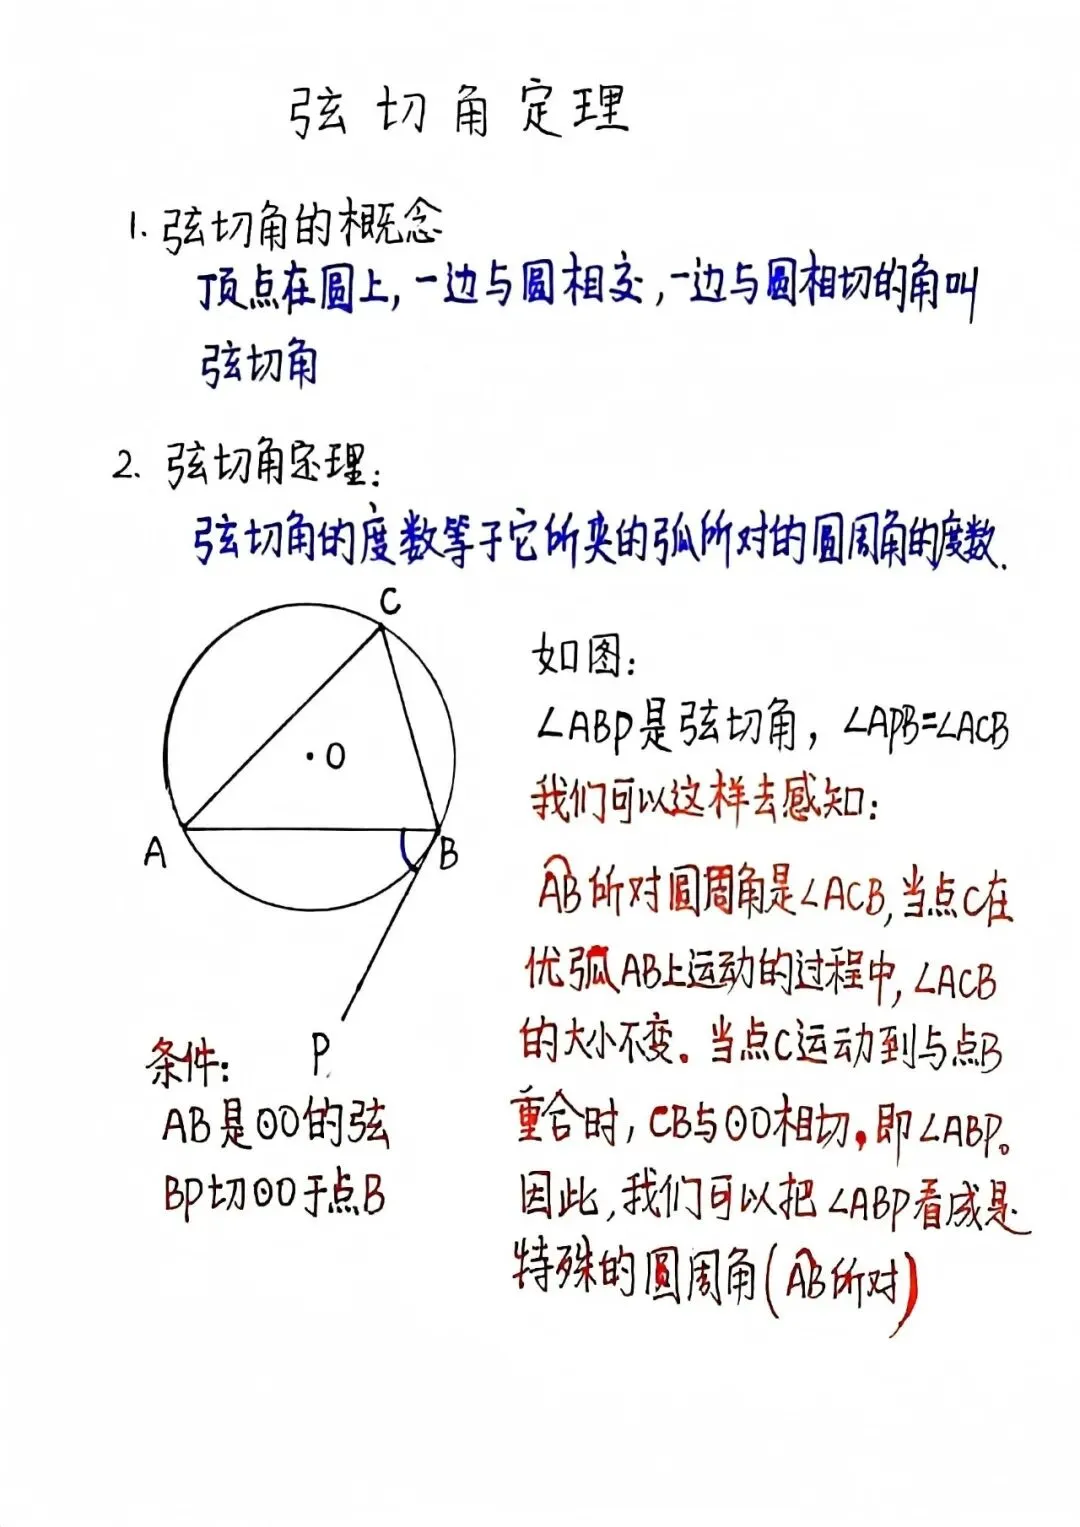 弦切角定理
1. 弦切角的概念
顶点在圆上,一边与圆相交,一边与圆相切的角叫
弦切角
2. 弦切角定理:
弦切角的度数等于它所夹的弧所对的圆周角的度数.
C
O
A
B
P
条件:
AB是⊙O的弦
BP切⊙O于点B
如图:
∠ABP是弦切角,∠APB=∠ACB
我们可以这样去感知:
A͡B所对圆周角是∠ACB,当点C在
优弧AB上运动的过程中,∠ACB
的大小不变。当点C运动到与点B
重合时,CB与⊙O相切。即∠ABP。
因此,我们可以把∠ABP看成是
特殊的圆周角(A͡B所对)